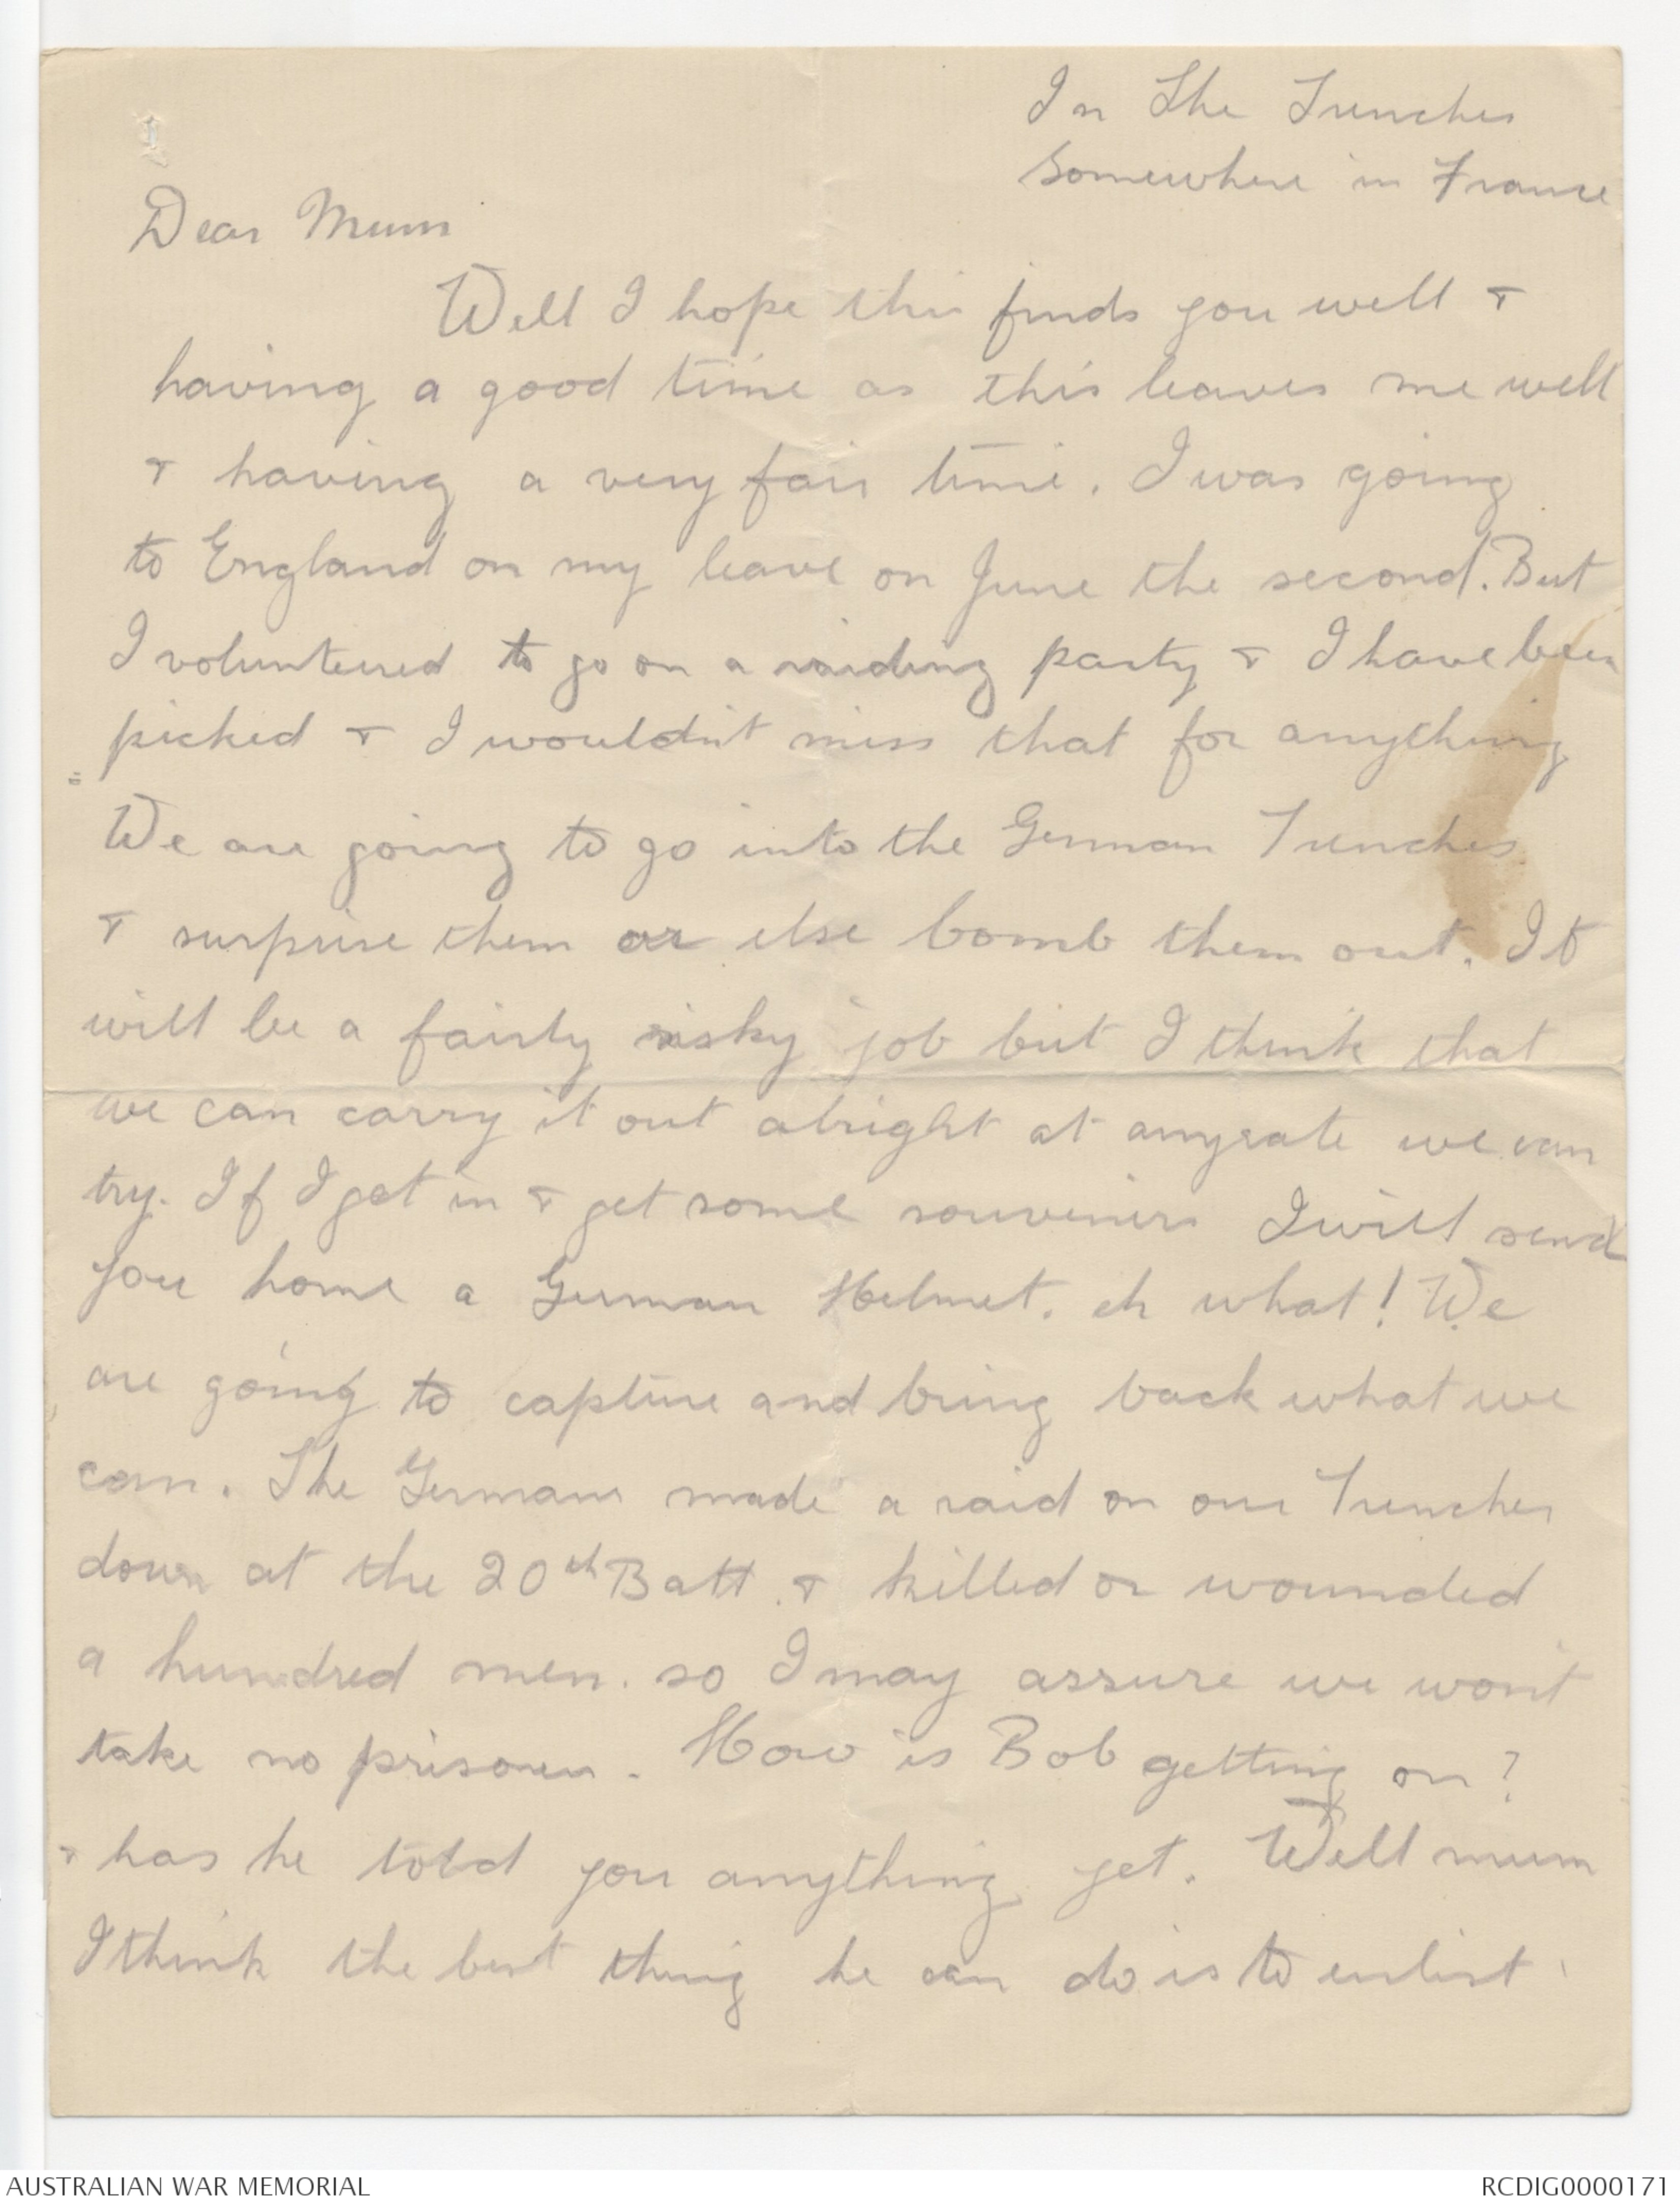 In The Trenches
Somewhere in France
Dear Mum
Well I hope this finds you well &
having a good time as this leaves me well
& having a very fair time. I was going
to England on my leave on June the second. But
I volunteered to go on a raiding party & I have been
picked & I wouldn't miss that for anything
We are going to go into the German Trenches
& surprise them or else bomb them out. It
will be a fairly risky job but I think that
we can carry it out alright at anyrate we can
try. If I get in & get some souveniers I will send
you home a German Helmet. eh what! We
are going to capture and bring back what we
can. The Germans made a raid on our Trenches
down at the 20th Batt. & killed or wounded
a hundred men. so I may assure we won't
take no prisoners. How is Bob getting on?
& has he told you anything yet. Well mum
I think the best thing he can do is to enlist
AUSTRALIAN WAR MEMORIAL
RCDIG0000171